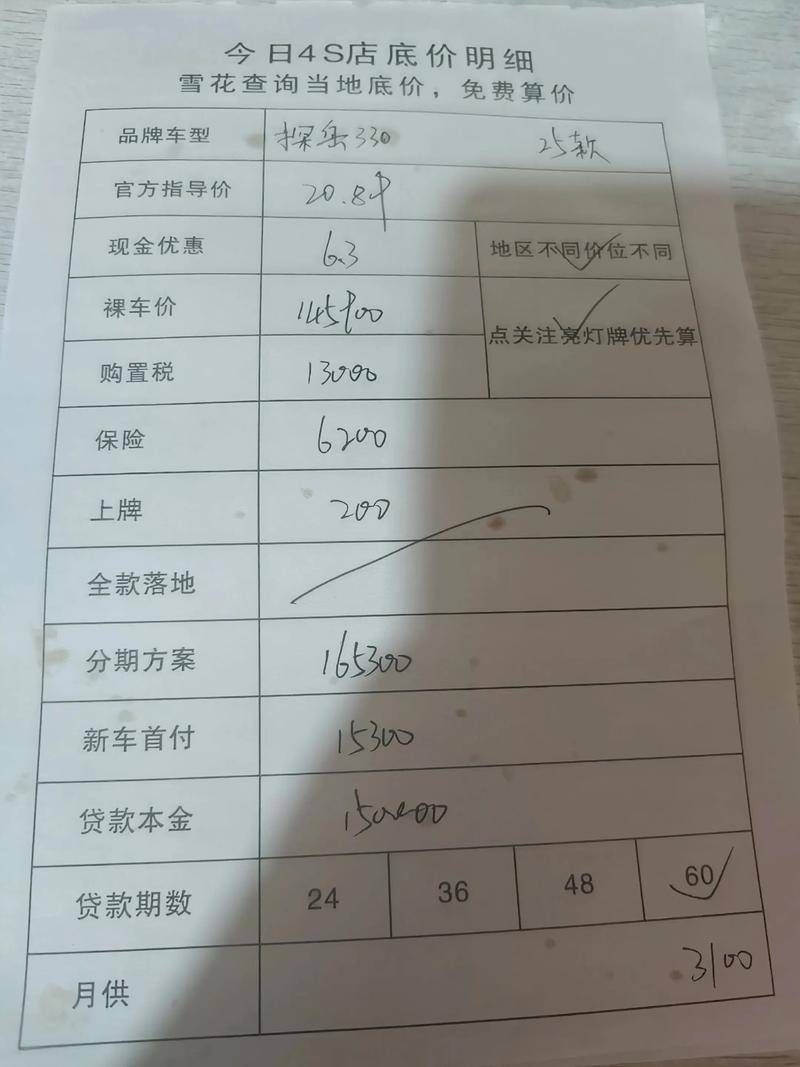 今日4S店底价明细
雪花查询当地底价，免费算价
品牌车型 探岳330 25款
官方指导价 20.89
现金优惠 6.3 地区不同价位不同
裸车价 145900
点关注亮灯牌优先算
购置税 13000
保险 6200
上牌 200
全款落地
分期方案 165300
新车首付 15300
贷款本金 150000
贷款期数 24 36 48 60
月供 3100